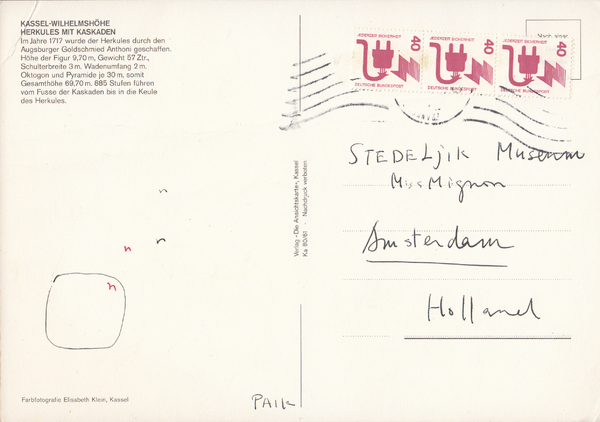 KASSEL-WILHELMSHÖHE
HERKULES MIT KASKADEN
Im Jahre 1717 wurde der Herkules durch den
Augsburger Goldschmied Anthoni geschaffen.
Höhe der Figur 9,70 m, Gewicht 57 Ztr.,
Schulterbreite 3 m. Wadenumfang 2 m.
Oktogon und Pyramide je 30 m, somit
Gesamthöhe 69,70 m. 885 Stufen führen
vom Fusse der Kaskaden bis in die Keule
des Herkules.
Farbfotografie Elisabeth Klein, Kassel
PAIK
Verlag »Die Ansichtskarte«, Kassel
Ka 80/61 · Nachdruck verboten
JEDERZEIT SICHERHEIT
40
DEUTSCHE BUNDESPOST
JEDERZEIT SICHERHEIT
40
DEUTSCHE BUNDESPOST
JEDERZEIT SICHERHEIT
40
DEUTSCHE BUNDESPOST
STEDELjik Museum
Miss Mignon
Amsterdam
Holland